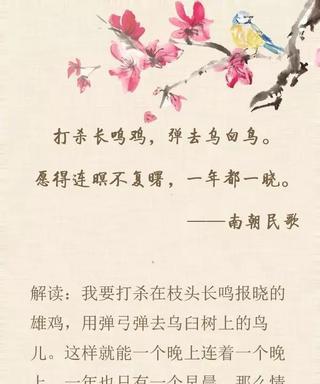 打杀长鸣鸡，弹去乌臼鸟。
愿得连暝不复曙，一年都一晓。
——南朝民歌
解读：我要打杀在枝头长鸣报晓的
雄鸡，用弹弓弹去乌臼树上的鸟
儿。这样就能一个晚上连着一个晚
上，一年也只有一个早晨，那么情